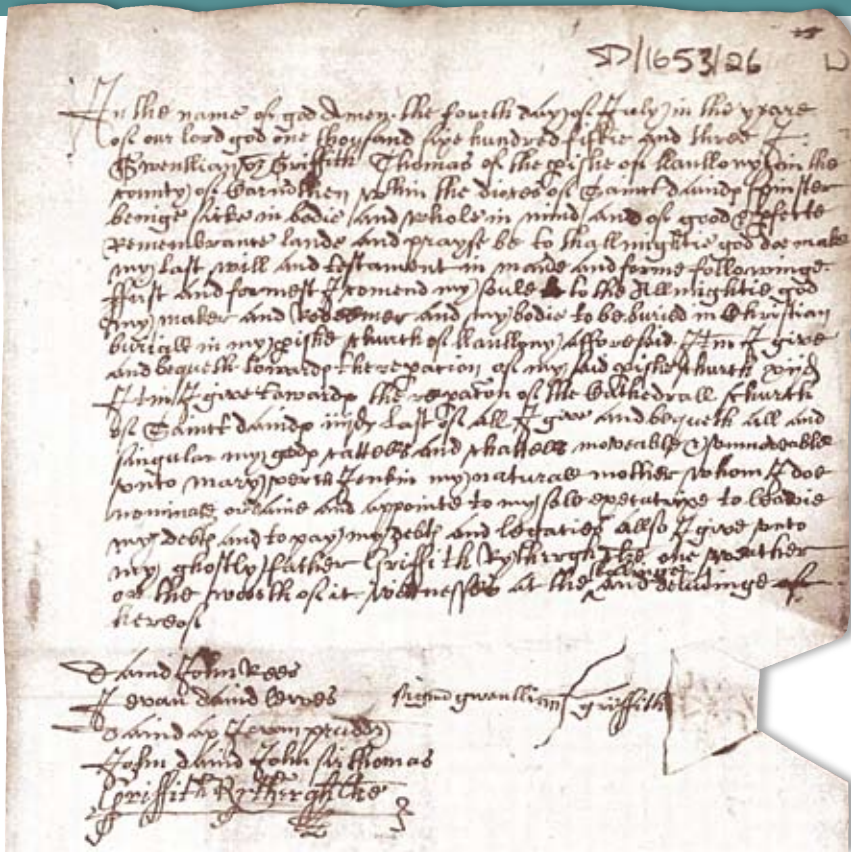 D/1653/26
In the name of god Amen the fourth day of July in the yeare
of our lord god one thousand sixe hundred fiftie and three I
Gwenllian Griffith Thomas of the pishe of llanllony in the
county of Carmarthen within the dioces of Sainct david spinster
beinge sicke in bodie and whole in mind and of good & pfecte
Remembrance laude and prayse be to thallmightie god doe make
my last will and testament in and forme followinge
ffirst and formest I comend my soule to the Allmightie god
my maker and Redeemer and my bodie to be buried in Christian
buriall in my pishe church of llanllony afforesaid Itm I give
and bequeth towards the repacion of my said pishe church xijd
Itm I give towards the repacon of the Cathedrall church
of Sainct davids iiijd Last of all I geve and bequeth all and
singular my gods cattells and chattells moveable & unmoveable
unto Mary verch Jenkin my naturall mother whom I doe
nominate ordaine and appointe to my sole executrixe to
my debts and to pay my debts and legacies allso I give unto
my ghostly father Griffith Rytherch one weather
or the worth of it wittnesses at the sealinge and deliveringe of
hereof
David John Rees
Jevan david
David ap Jevan
John david John thomas
Griffith Rytherch
signu gwenllian griffith